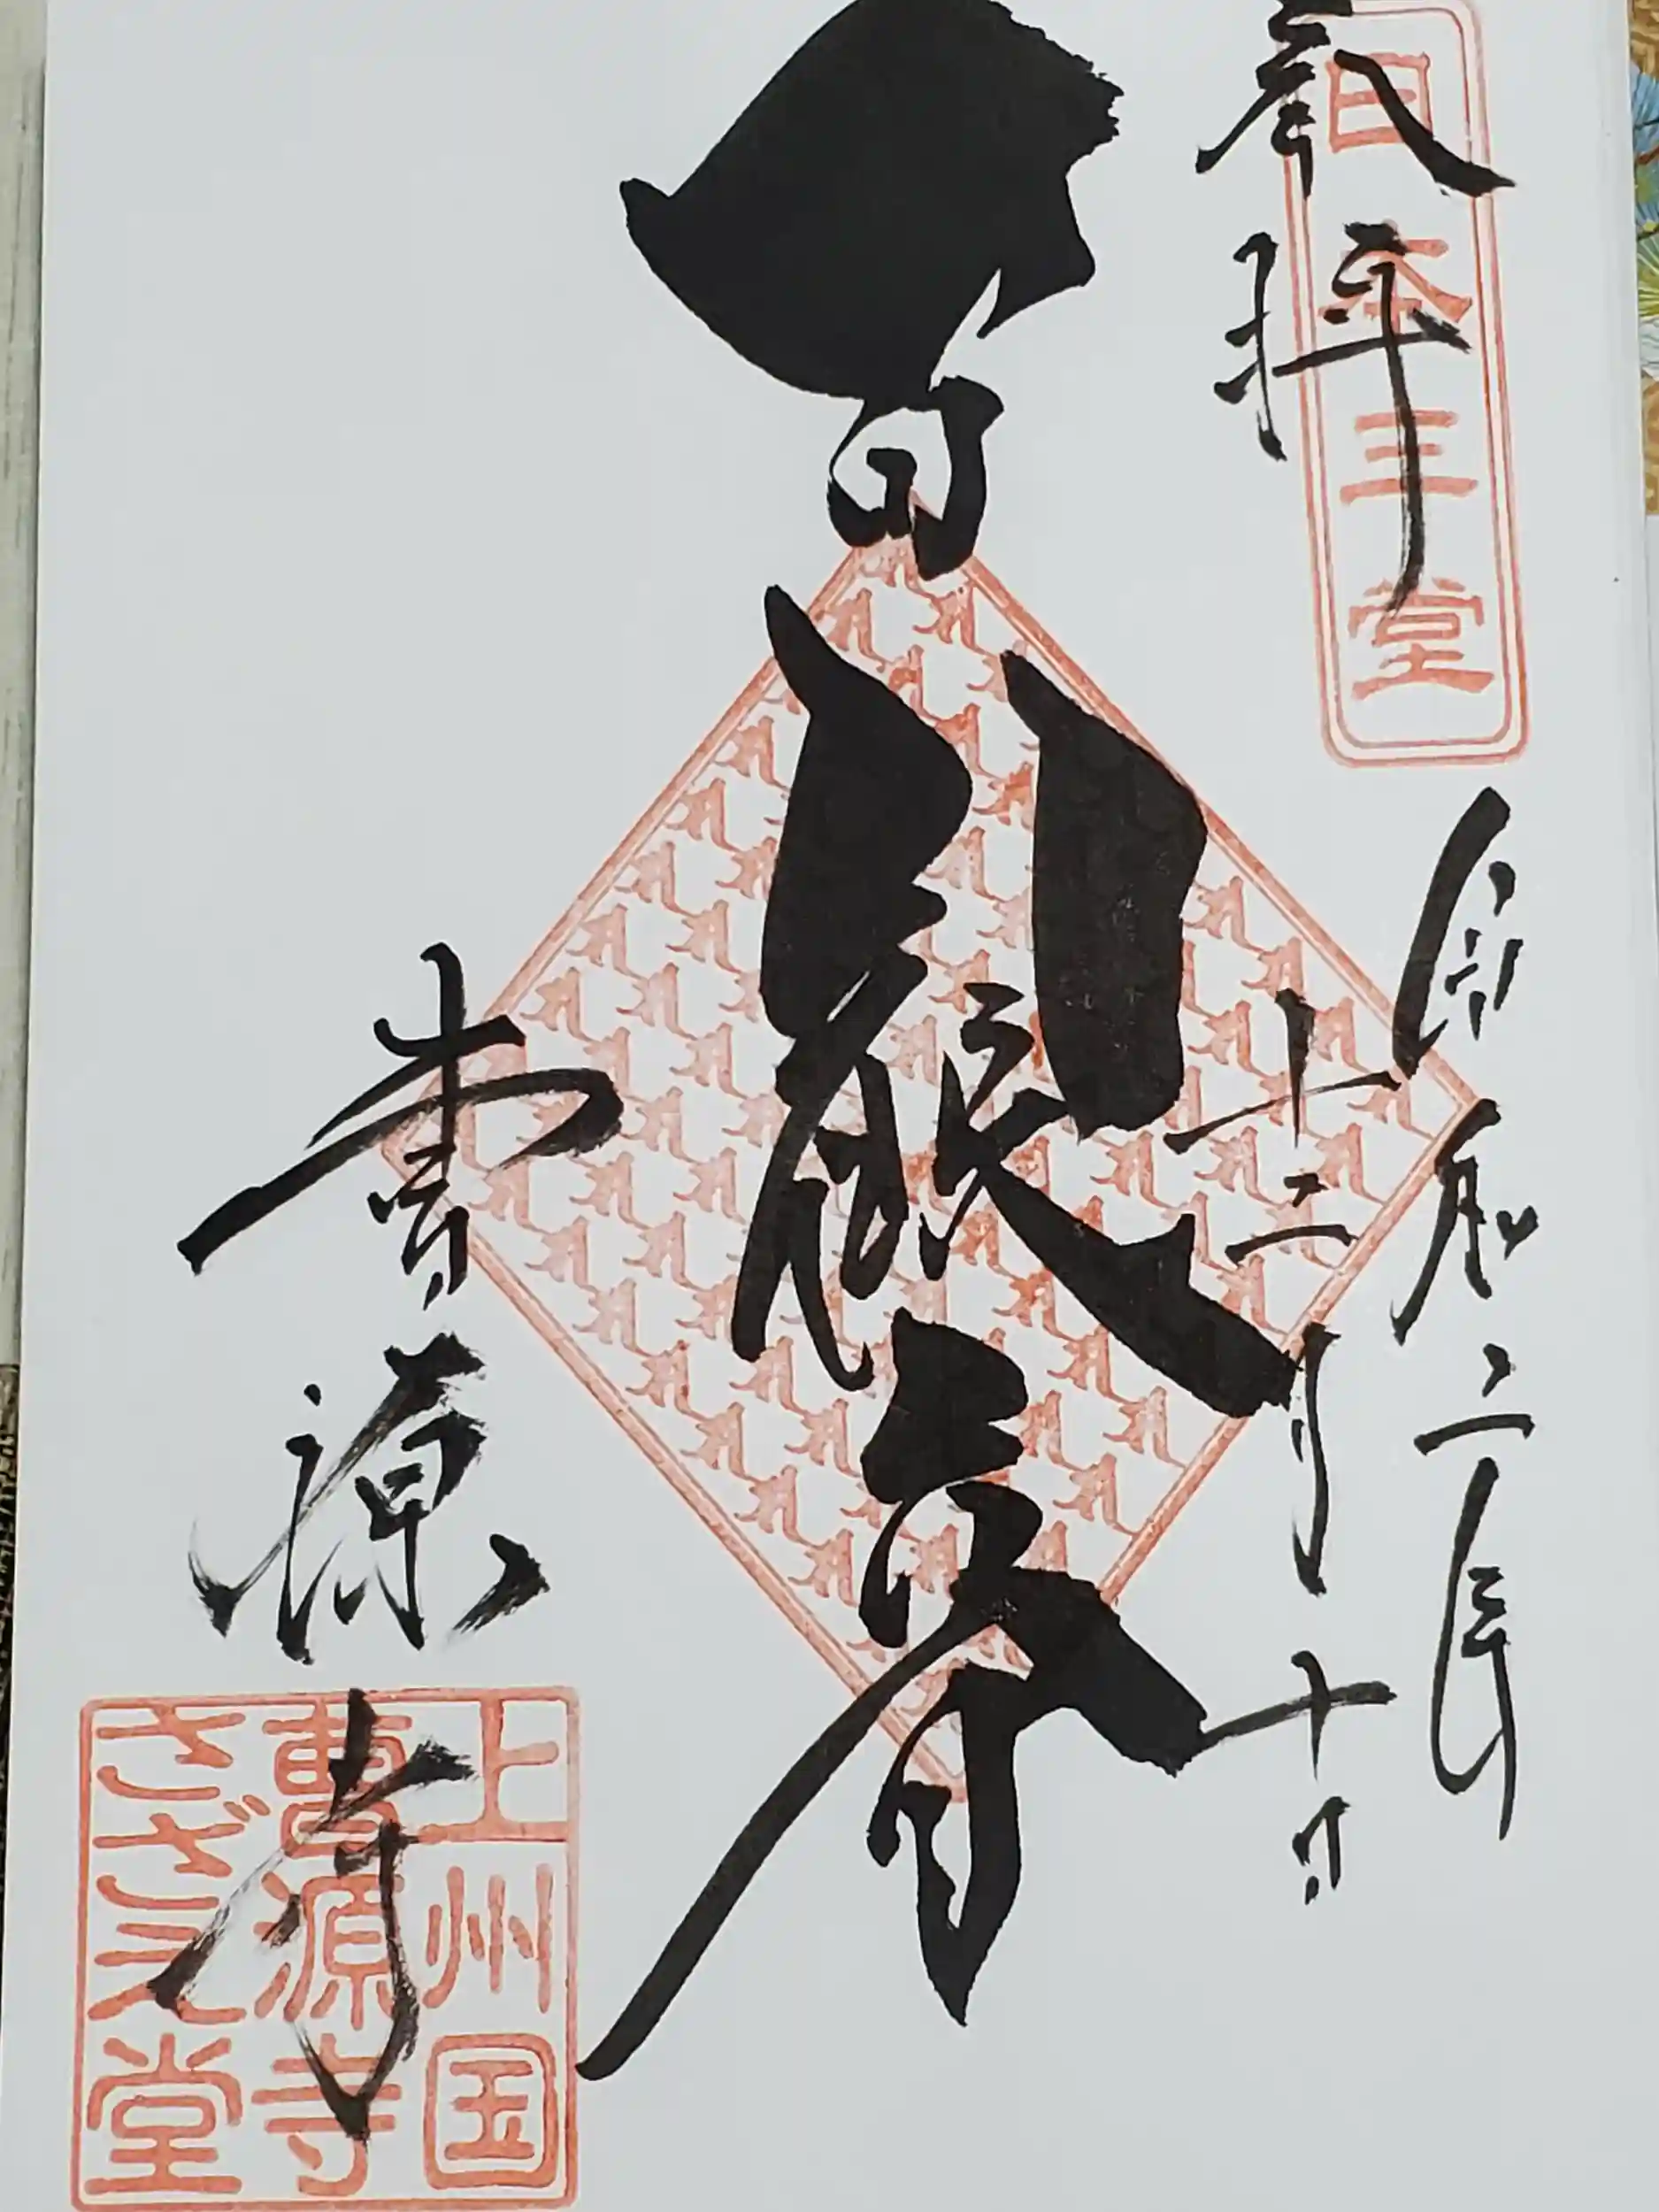 奉拝
日本三堂
令和二年
十二月十日
百観音
曹源寺
上州国
曹源寺
さざえ堂